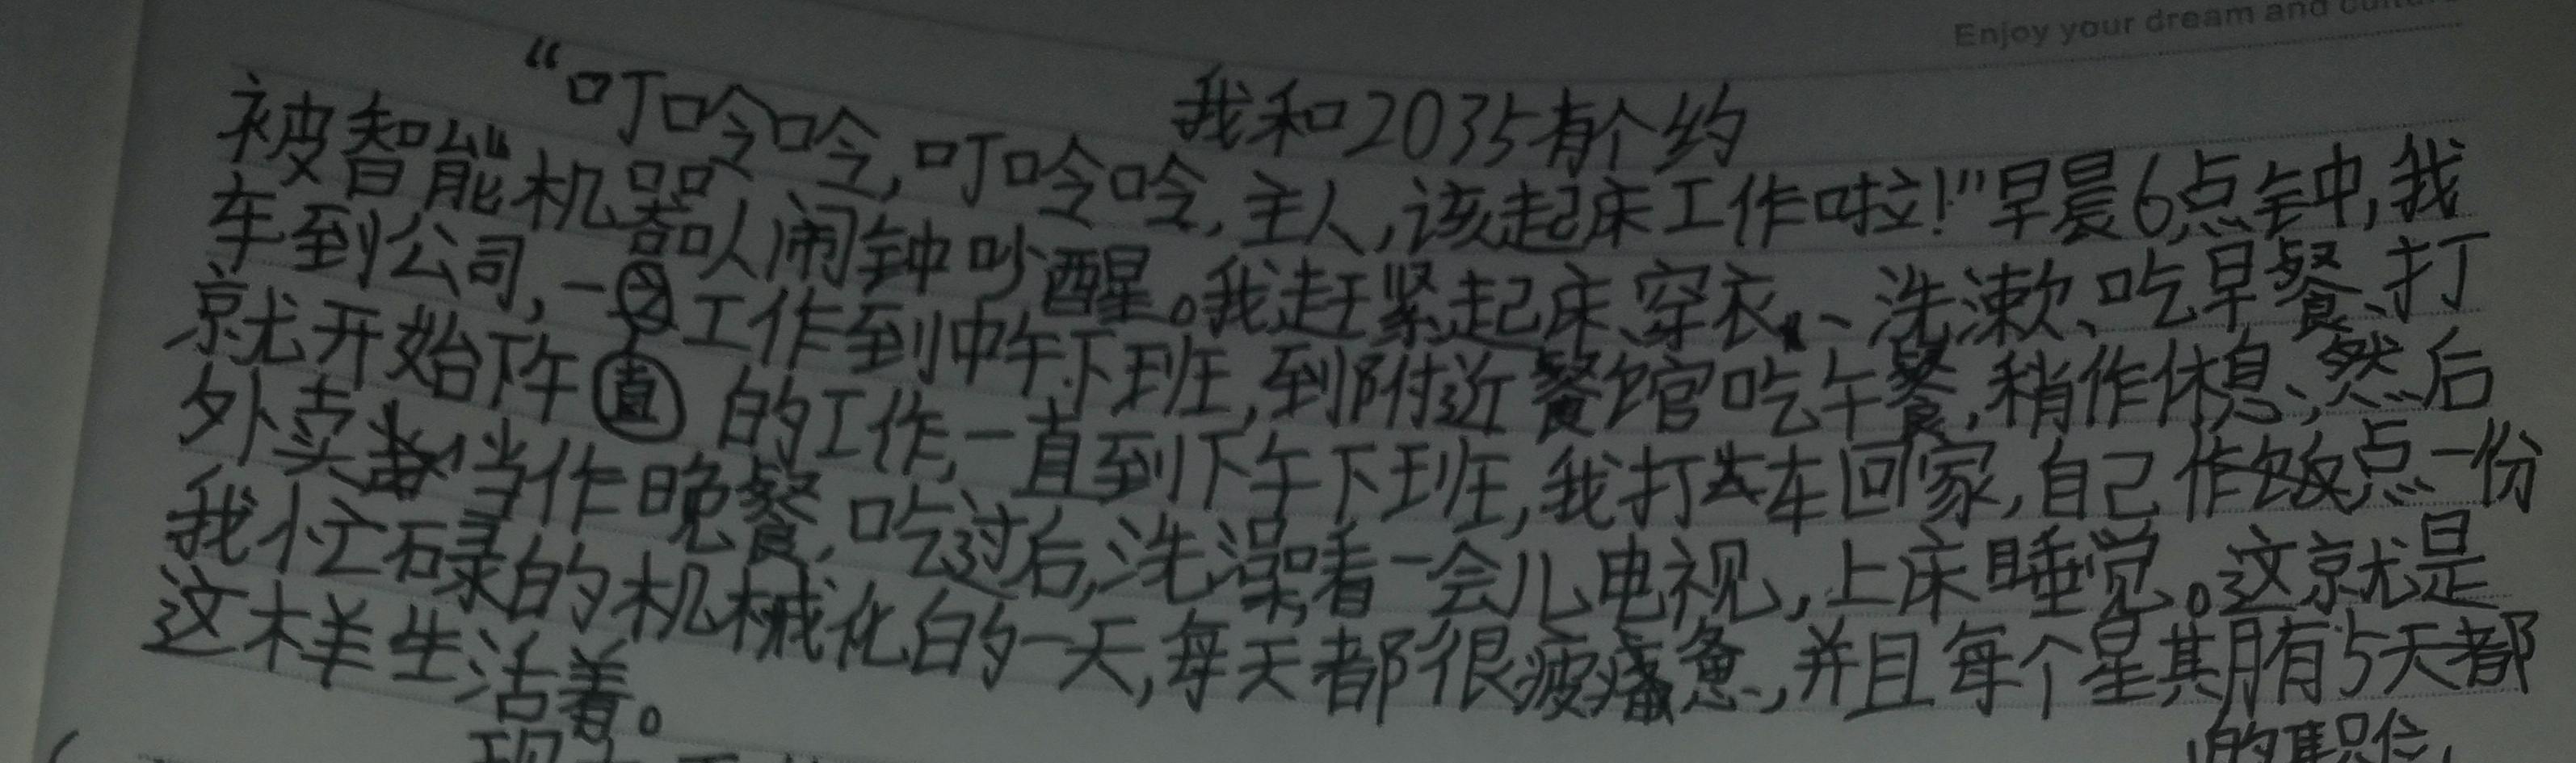 Enjoy your dream and
我和2035有个约
“叮呤呤,叮呤呤,主人,该起床工作啦!”早晨6点钟,我
被智能机器人闹钟吵醒。我赶紧起床、穿衣、洗漱、吃早餐、打
车到公司,一直工作到中午下班,到附近餐馆吃午餐,稍作休息,然后
就开始下午的工作,一直到下午下班,我打车回家,自己作饭点一份
外卖当作晚餐,吃过后,洗澡,看一会儿电视,上床睡觉。这就是
我忙碌的机械化的一天,每天都很疲惫,并且每个星期有5天都
这样生活着。
的职位,